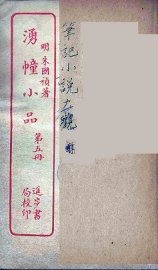 明朱國禎著
湧幢小品
第五冊
進步書
局校印
筆記小說